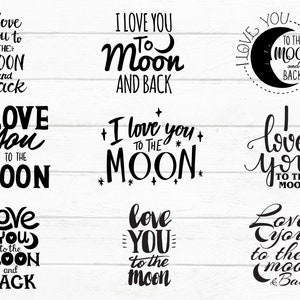 love
you to
THE
MOON
and
BACK
I LOVE YOU
To
Moon
AND BACK
I LOVE YOU
TO THE
MOON
and
BACK
LOVE
You
TO THE
MOON
I love you
TO THE
MOON
I
love
YOU
TO THE
MOON
LOVE
YOU
to the
MOON
and
BACK
love
YOU
to the
moon
Love
you
to the
moon
& Back